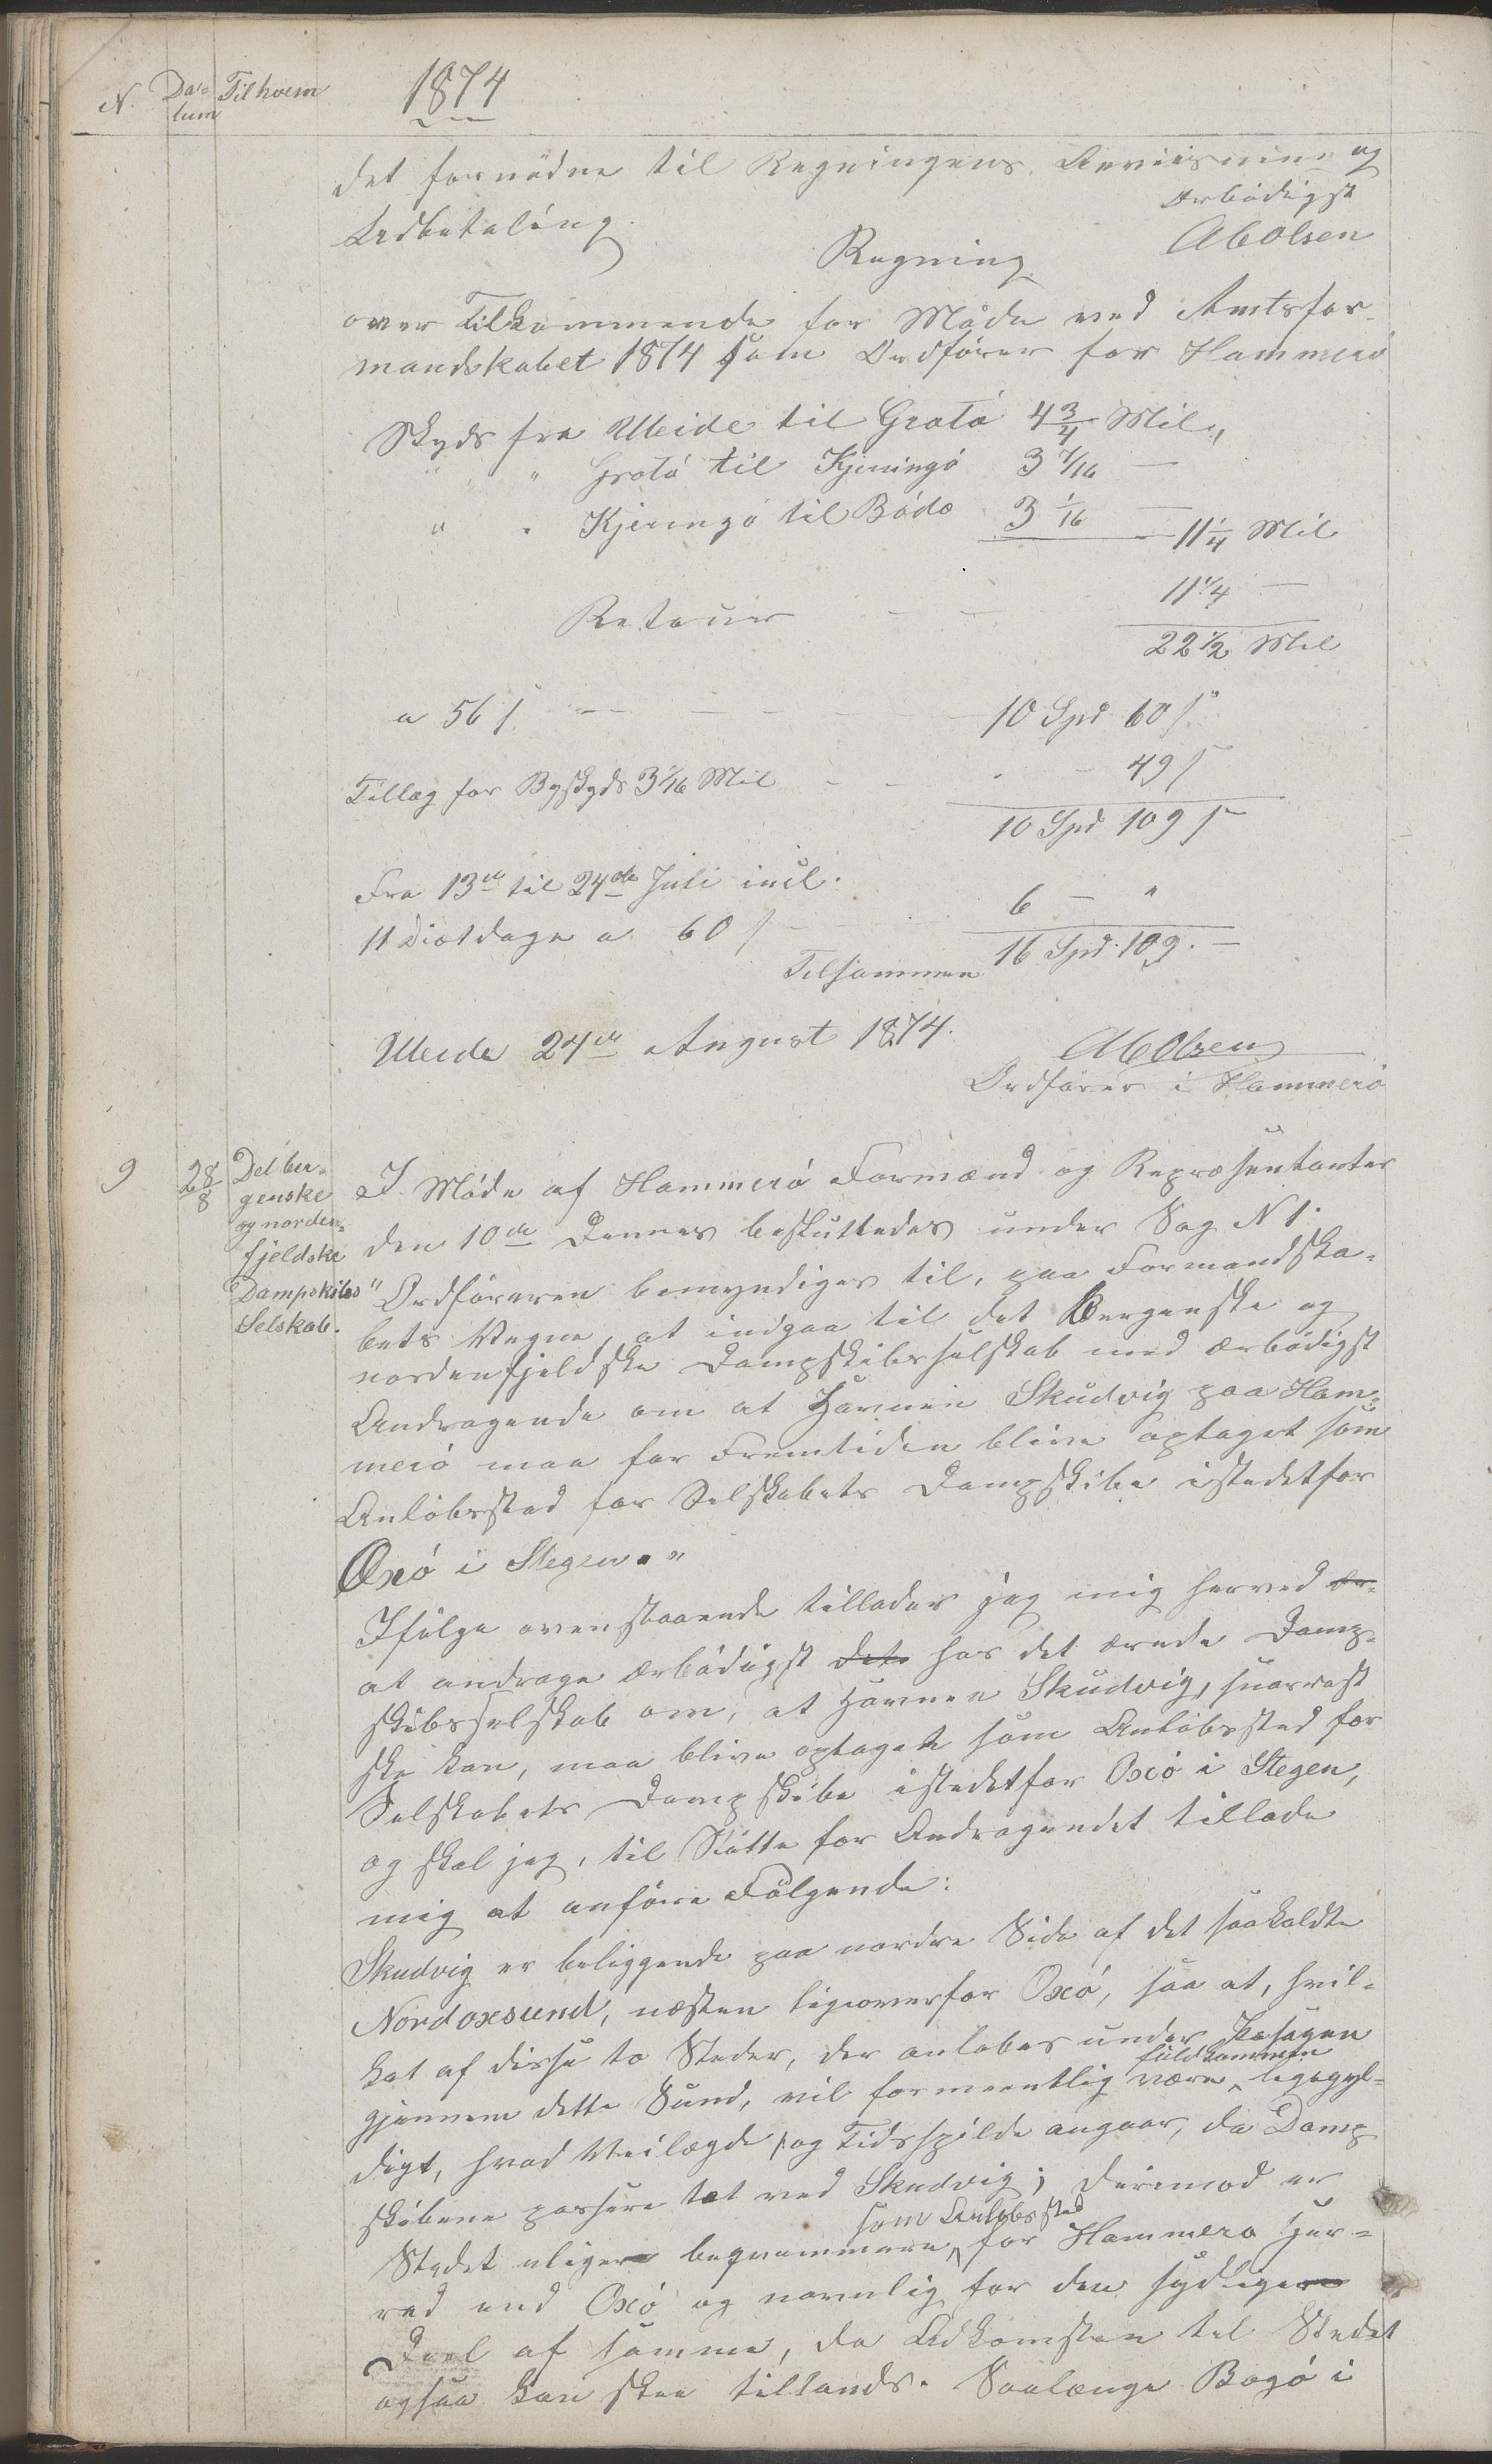 N. Da= Til hvem 1874
tum
det fornødne til Regningens Anviisning og
Udbetaling.
Ærbödigst
AbOlsen
Regning
over Tilkommende for Möde ved Amtsfor-
mandskabet 1874 som Ordförer for Hammerö
Skyds fra Uleide til Grötö 4 3/4 Mil,
" " Grötö til Kjeringö 3 7/16 —
" " Kjeringö til Bodö 3 1/16 — 11 1/4 Mil
Retour — — 11 1/4 —
22 1/2 Mil
a 56 s — — — — 10 Spd 60 s
Tillæg for Byskyds 3 1/16 Mil — — " — 49 s
10 Spd 109 s
Fra 13de til 24de Juli incl.
11 Diætdage a 60 s — 6 — "
Tilsammen 16 Spd. 109. —
Uleide 24de August 1874.
AbOlsen
Ordförer i Hammerö
9 28/8 Det ber-
genske
og norden-
fjeldske
Dampskibs
Selskab.
I Möde af Hammerö Formænd og Repræsentanter
den 10de dennes besluttedes under Sag N 1.
"Ordföreren bemyndiges til, paa Formandska-
bets Vegne, at indgaa til det Bergenske og
nordenfjeldske Dampskibsselskab med ærbödigst
Andragende om at Havnen Skudvig paa Ham-
merö maa for Fremtiden blive optaget som
Anlöbssted for Selskabets Dampskibe istedetfor
Oxö i Stegen."
Ifölge ovenstaaende tillader jeg mig herved ær-
at andrage ærbödigst det hos det ærede Damp-
skibsselskab om, at Havnen Skudvig, snarest
ske kan, maa blive optaget som Anlöbssted for
Selskabets Dampskibe istedetfor Oxö i Stegen,
og skal jeg, til Stötte for Andragendet tillade
mig at anföre Fölgende:
Skudvig er beliggende paa nordre Side af det saakaldte
Nordoxsund, næsten ligeoverfor Oxö, saa at, hvil-
ket af disse to Steder, der anlöbes under Passagen
gjennem dette Sund, vil formeentlig være fuldkommen ligegyl-
digt, hvad Veilængde og Tidsspilde angaar, da Damp
skibene passere tæt ved Skudvig; derimod er
Stedet uligere beqvemmere som Anlöbssted for Hammerö Her-
red end Oxö og navnlig for den sydligere
Deel af samme, da Adkomsten til Stedet
ogsaa kan skee tillands. Saalænge Bogö i